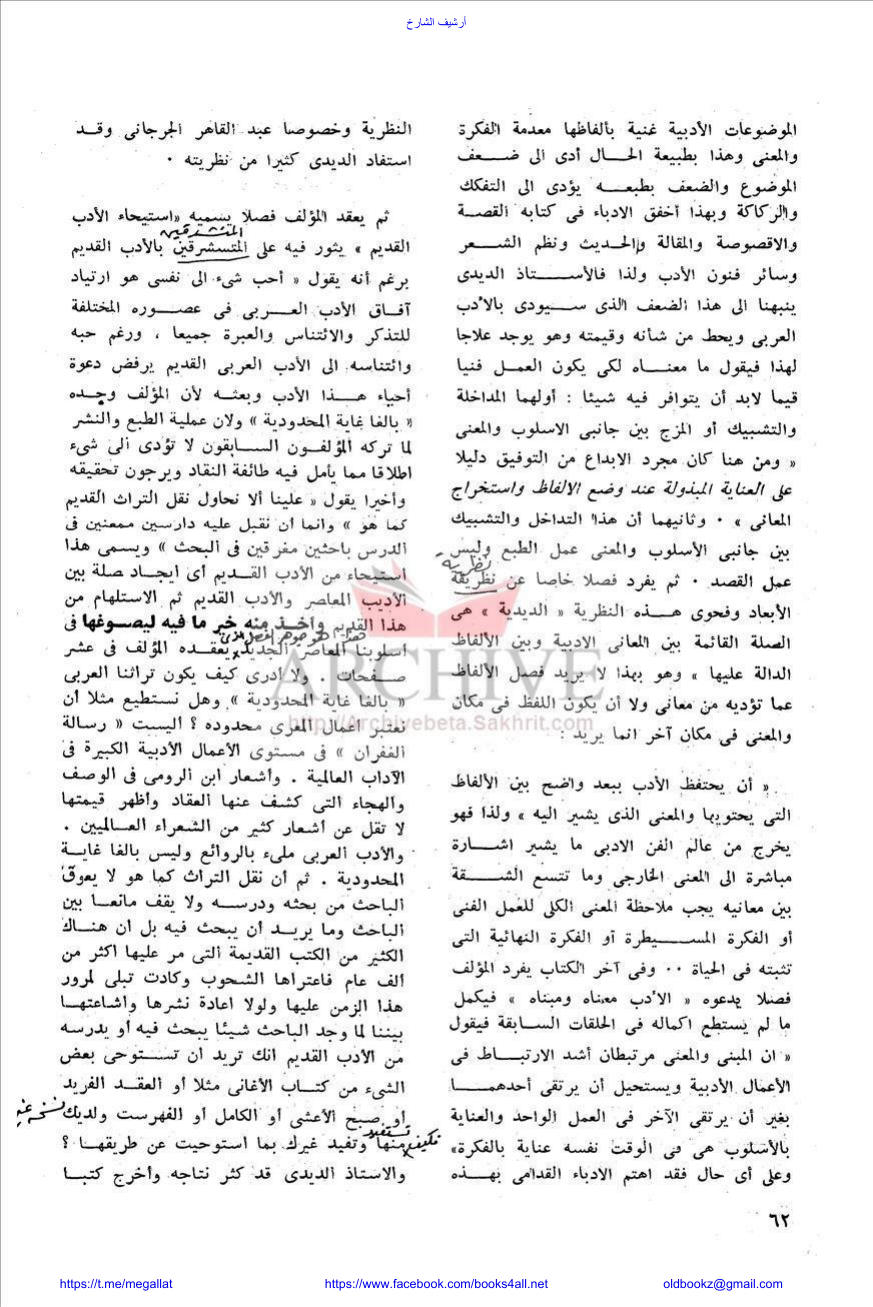 أرشيف الشارخ
الموضوعات الأدبية غنية بألفاظها معدمة الفكرة
والمعنى وهذا بطبيعة الحال أدى الى ضعف
الموضوع والضعف بطبعه يؤدى الى التفكك
والركاكة وبهذا أخفق الادباء فى كتابه القصة
والاقصوصة والمقالة والحديث ونظم الشعر
وسائر فنون الأدب ولذا فالأستاذ الديدى
ينبهنا الى هذا الضعف الذى سيودى بالأدب
العربى ويحط من شأنه وقيمته وهو يوجد علاجا
لهذا فيقول ما معناه لكى يكون العمل فنيا
قيما لابد أن يتوافر فيه شيئا : أولهما المداخلة
والتشبيك أو المزج بين جانبى الاسلوب والمعنى
« ومن هنا كان مجرد الابداع من التوفيق دليلا
على العناية المبذولة عند وضع الالفاظ واستخراج
المعانى » ٠ وثانيهما أن هذا التداخل والتشبيك
بين جانبى الأسلوب والمعنى عمل الطبع وليس
نظرية
عمل القصد ٠ ثم يفرد فصلا خاصا عن نظريقة
الأبعاد وفحوى هذه النظرية « الديدية » هى
الصلة القائمة بين المعانى الادبية وبين الألفاظ
الدالة عليها » وهو بهذا لا يريد فصل الألفاظ
عما تؤديه من معانى ولا أن يكون اللفظ فى مكان
والمعنى فى مكان آخر انما يريد :
« أن يحتفظ الأدب ببعد واضح بين الألفاظ
التى يحتويها والمعنى الذى يشير اليه » ولذا فهو
يخرج من عالم الفن الادبى ما يشير اشارة
مباشرة الى المعنى الخارجى وما تتسع الشقة
بين معانيه يجب ملاحظة المعنى الكلى للعمل الفنى
أو الفكرة المسيطرة أو الفكرة النهائية التى
تثبته فى الحياة ٠٠ وفى آخر الكتاب يفرد المؤلف
فصلا يدعوه « الأدب معناه ومبناه » فيكمل
ما لم يستطع اكماله فى الحلقات السابقة فيقول
« ان المبنى والمعنى مرتبطان أشد الارتباط فى
الأعمال الأدبية ويستحيل أن يرتقى أحدهما
بغير أن يرتقى الآخر فى العمل الواحد والعناية
بالأسلوب هى فى الوقت نفسه عناية بالفكرة»
وعلى أى حال فقد اهتم الادباء القدامى بهذه
النظرية وخصوصا عبد القاهر الجرجانى وقد
استفاد الديدى كثيرا من نظريته ٠
ثم يعقد المؤلف فصلا يسميه «استيحاء الأدب
المستشرقين
القديم » يثور فيه على المتسشرقين بالأدب القديم
برغم أنه يقول « أحب شىء الى نفسى هو ارتياد
آفاق الأدب العربى فى عصوره المختلفة
للتذكر والائتناس والعبرة جميعا ، ورغم حبه
وائتناسه الى الأدب العربى القديم يرفض دعوة
أحياء هذا الأدب وبعثه لأن المؤلف وجده
« بالغا غاية المحدودية » ولان عملية الطبع والنشر
لما تركه المؤلفون السابقون لا تؤدى الى شىء
اطلاقا مما يأمل فيه طائفة النقاد ويرجون تحقيقه
وأخيرا يقول « علينا ألا نحاول نقل التراث القديم
كما هو » وانما ان نقبل عليه دارسين ممعنين فى
الدرس باحثين مغرقين فى البحث » ويسمى هذا
استيحاء من الأدب القديم أى ايجاد صلة بين
الأديب المعاصر والأدب القديم ثم الاستلهام من
هذا القديم وأخذ منه خير ما فيه ليصوغها فى
اسلوبنا المعاصر الجديد يعقده المؤلف فى عشر
صفحات . ولا أدرى كيف يكون تراثنا العربى
« بالغا غاية المحدودية » وهل نستطيع مثلا أن
نعتبر اعمال المعرى محدوده ؟ اليست « رسالة
الغفران » فى مستوى الأعمال الأدبية الكبيرة فى
الآداب العالمية . وأشعار ابن الرومى فى الوصف
والهجاء التى كشف عنها العقاد وأظهر قيمتها
لا تقل عن أشعار كثير من الشعراء العالميين .
والأدب العربى ملىء بالروائع وليس بالغا غاية
المحدودية . ثم أن نقل التراث كما هو لا يعوق
الباحث من بحثه ودرسه ولا يقف مانعا بين
الباحث وما يريد أن يبحث فيه بل ان هناك
الكثير من الكتب القديمة التى مر عليها اكثر من
ألف عام فاعتراها الشحوب وكادت تبلى لمرور
هذا الزمن عليها ولولا اعادة نشرها واشاعتها
بيننا لما وجد الباحث شيئا يبحث فيه أو يدرسه
من الأدب القديم انك تريد ان تستوحى بعض
الشىء من كتاب الأغانى مثلا أو العقد الفريد
أو صبح الأعشى أو الكامل أو الفهرست ولديك
نسخة
فكيف تستفيد
منها وتفيد غيرك بما استوحيت عن طريقها ؟
والاستاذ الديدى قد كثر نتاجه وأخرج كتبا
٦٢
ARCHIVE
http://Archivebeta.Sakhrit.com
https://t.me/megallat
https://www.facebook.com/books4all.net
oldbookz@gmail.com